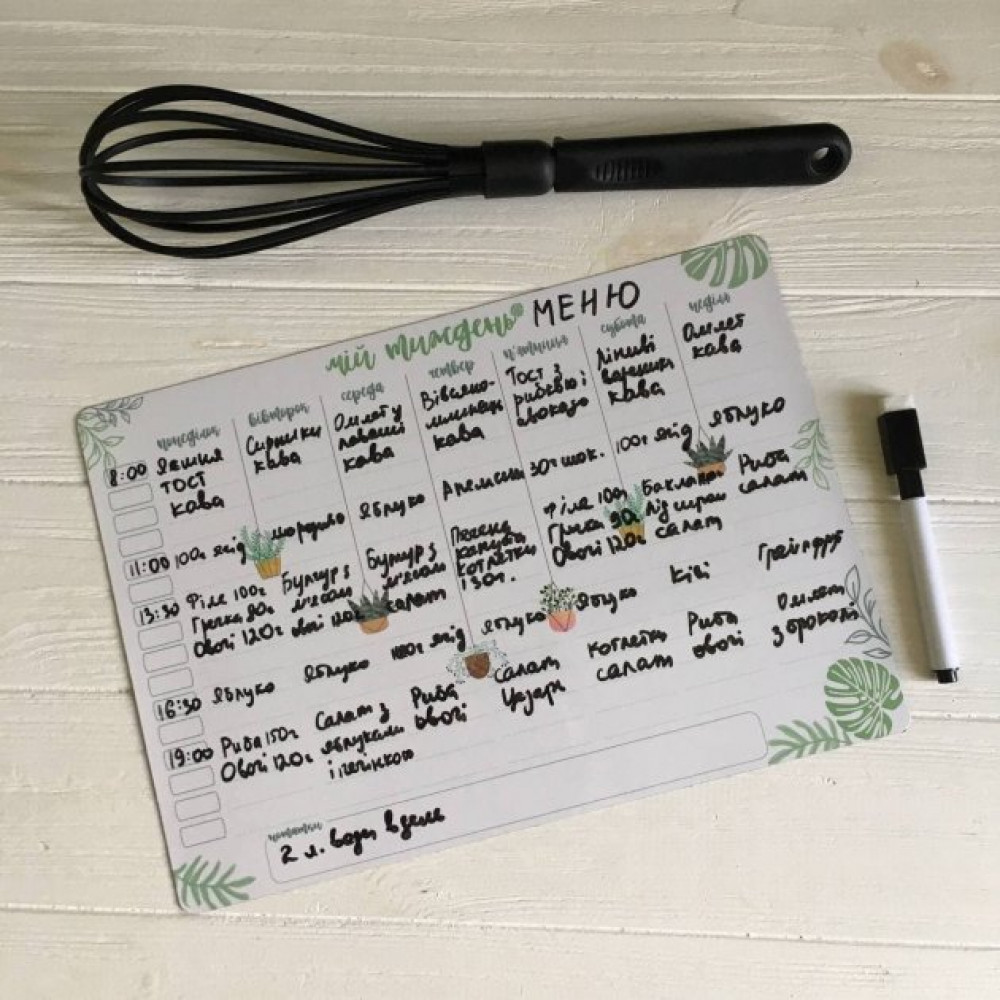 мій тиждень МЕНЮ
понеділок вівторок середа четвер п'ятниця субота неділя
8:00
Яєшня
тост
кава
Сирники
кава
Омлет у
лаваші
кава
Вівсяно-
кава
Тост з
рибкою і
авокадо
Ліниві
вареники
кава
Омлет
кава
11:00
100г ягід
Яблуко
30г шок.
100г ягід
Яблуко
13:30
Філе 100г
Гречка 80г
Овочі 120г
Булгур з
м'ясом
овочі 120г
Булгур з
м'ясом
салат
капуста
котлетки
130г.
Філе 100г
Гречка 80г
Овочі 120г
салат
Риба
салат
16:30
Яблуко
Яблуко
100г ягід
Яблуко
Яблуко
Ківі
Грейпфрут
19:00
Риба 150г
Овочі 120г
Салат з
яблуками
і печінкою
Риба
овочі
Салат
Цезарь
котлетки
салат
Риба
овочі
Омлет
з броколі
нотатки
2 л. води в день